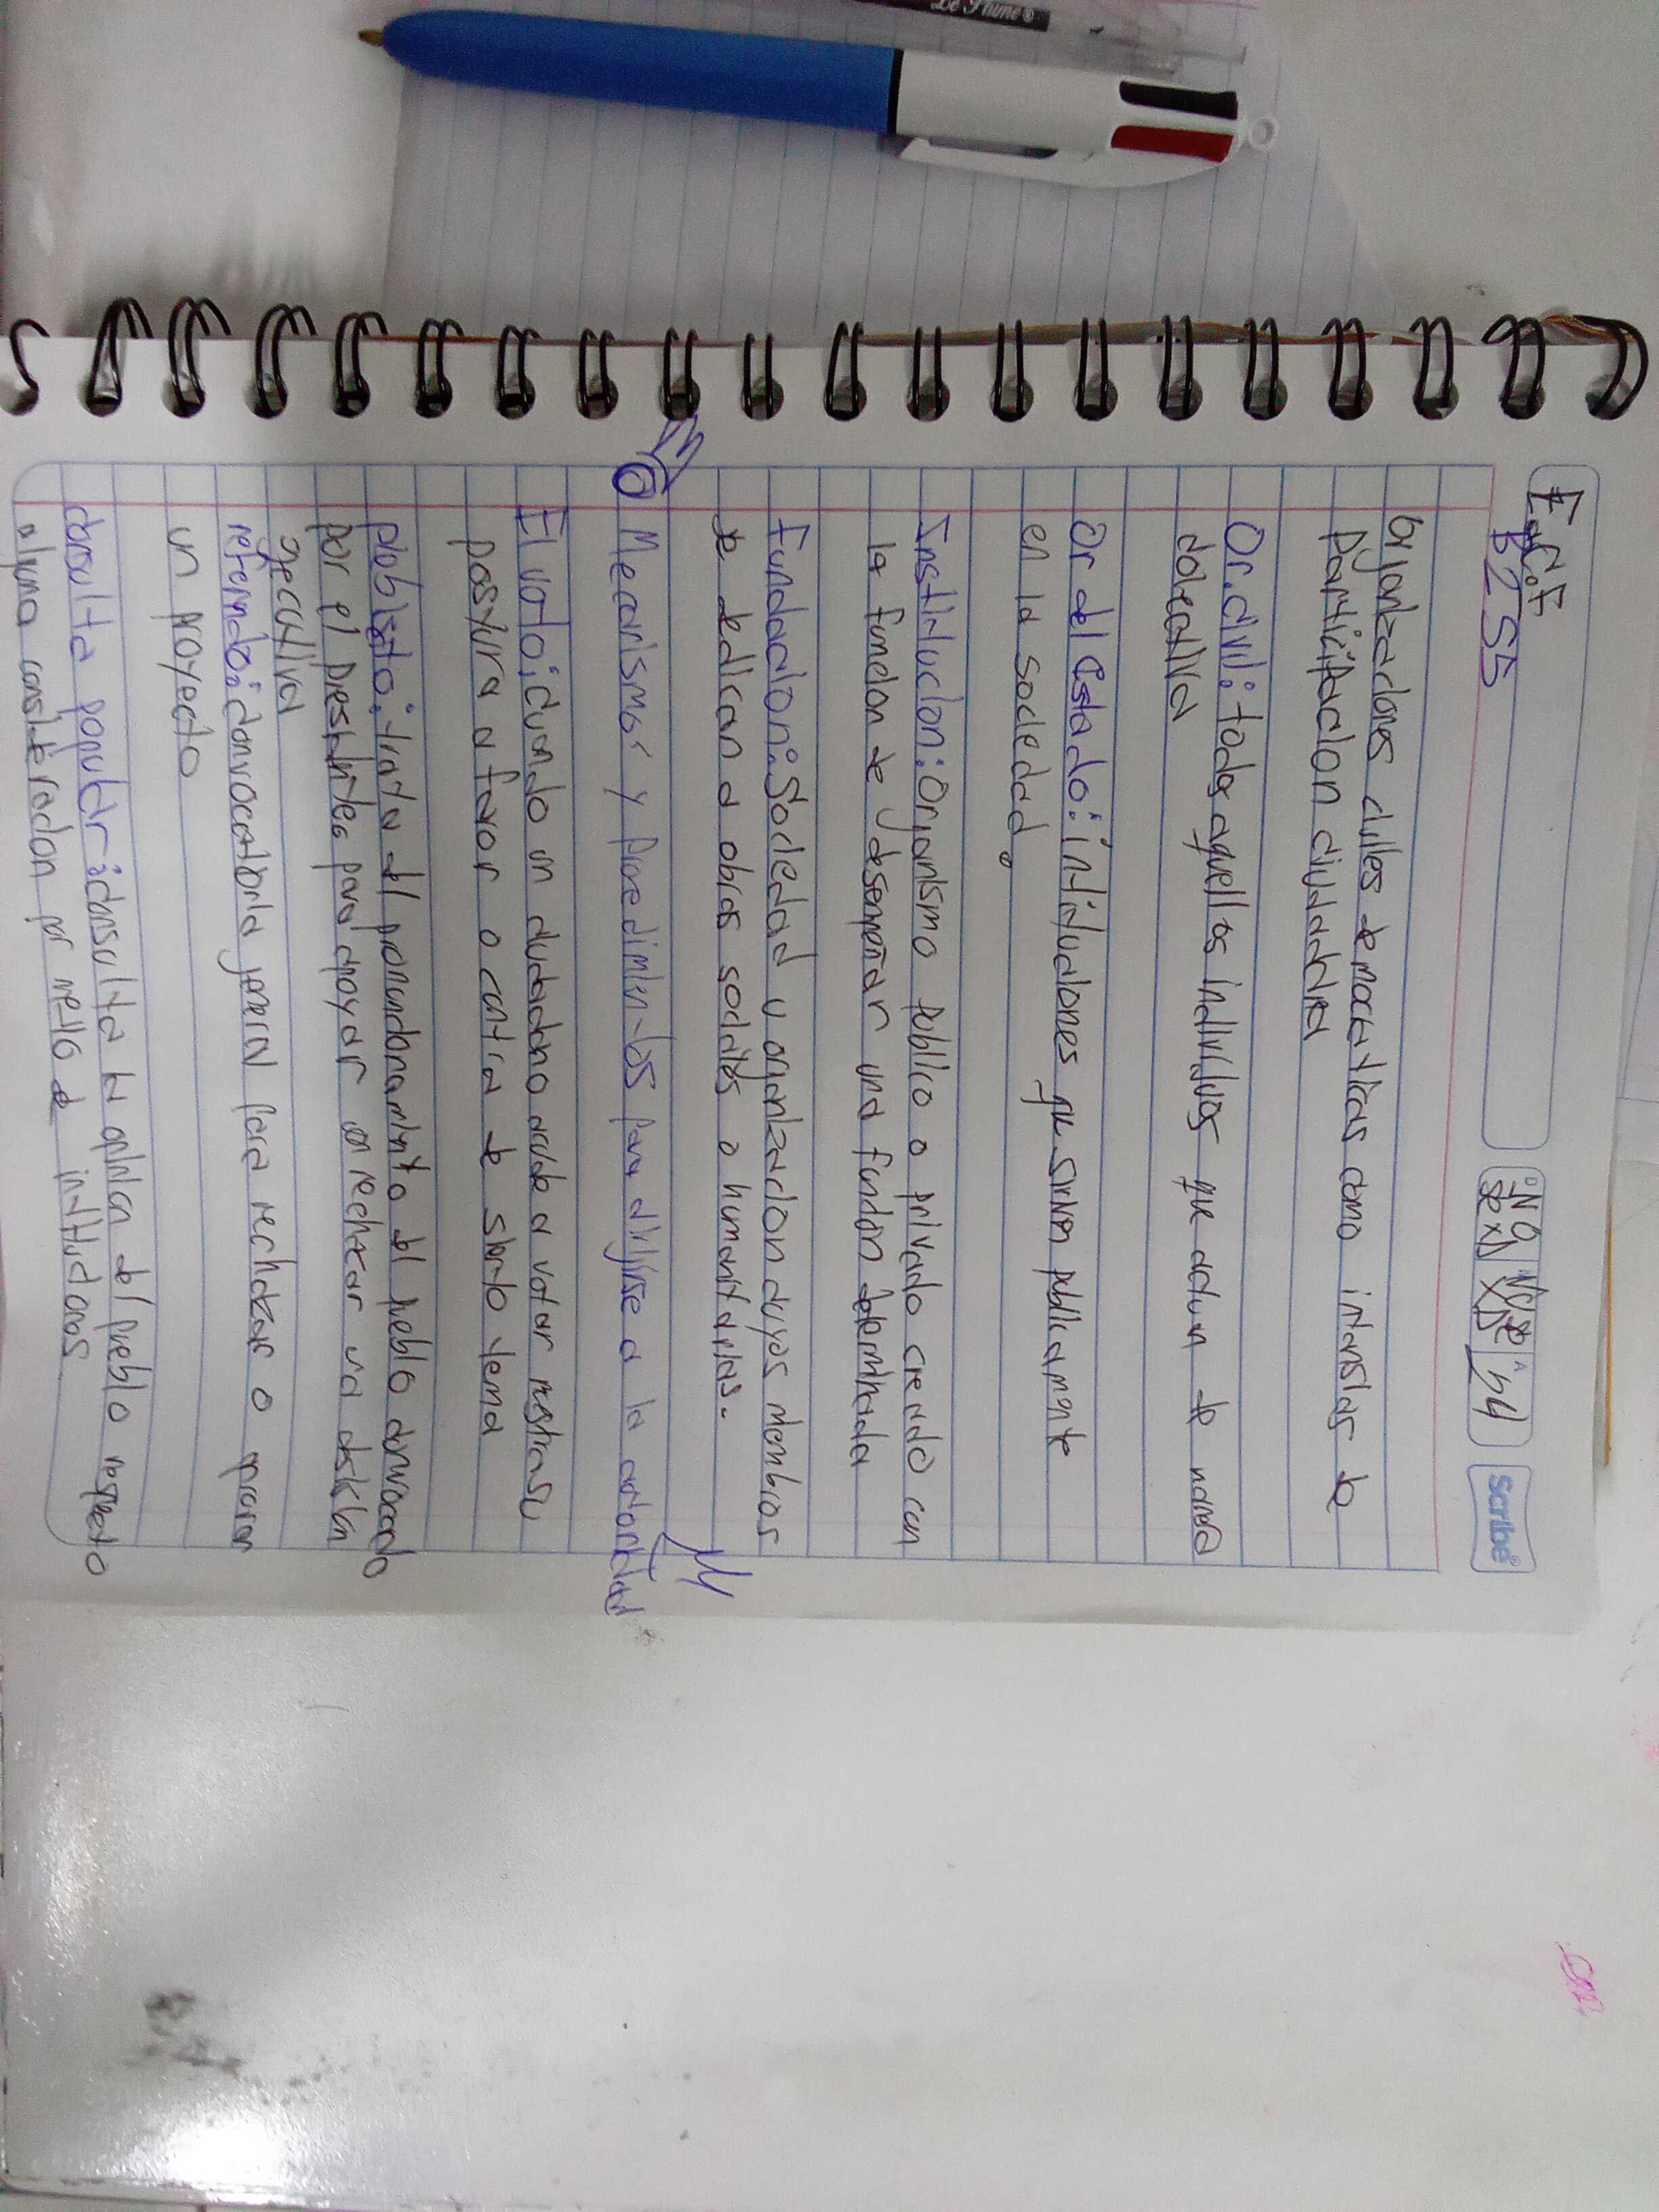 E.C.F
B2 S5
Nov 24
Scribe
Organizaciones civiles democraticas como instansias de
participacion ciudadana
Or.civil: todos aquellos individuos que actuan de manera
colectiva
Or del estado: intituciones que sirven publicamente
en la sociedad.
Institucion: Organismo publico o privado creado con
la funcion de desempeñar una funcion determinada
Fundacion: Sociedad u organizacion cuyos menbros
se dedican a obras sociales o humanitarias.
Mecanismos y procedimientos para dirijirse a la autoridad
El voto: cuando un ciudadano acude a votar
postura a favor o contra de sierto tema
plebisito: trata del pronunciamiento del pueblo convocado
por el presidente para apoyar o rechazar una desision
ejecutiva
referendo: convocatoria general para rechazar o aprovar
un proyecto
consulta popular: consulta la opinion del pueblo respecto
alguna consideracion por medio de instituciones
Le Plume®